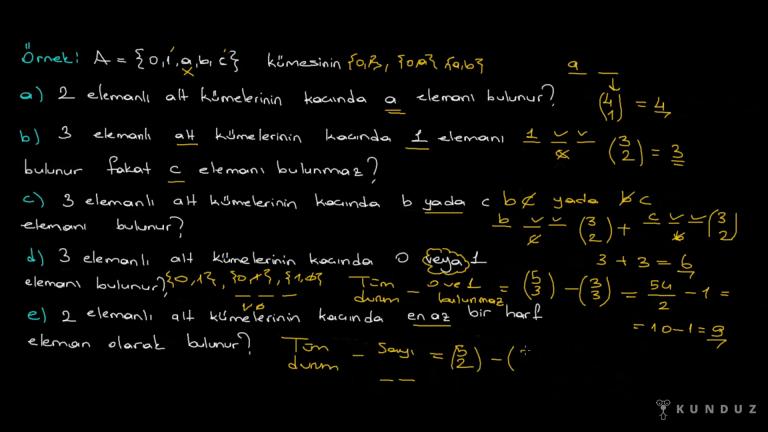 Örnek: A = {0,1,a,b,c} kümesinin {0,1}, {0,a} {a,b} a _
a) 2 elemanlı alt kümelerinin kaçında a elemanı bulunur? (4 1) = 4
b) 3 elemanlı alt kümelerinin kaçında 1 elemanı 1 _ _ (3 2) = 3
bulunur fakat c elemanı bulunmaz?
c) 3 elemanlı alt kümelerinin kaçında b yada c b c yada b c
elemanı bulunur? b _ _ (3 2) + c _ _ (3 2)
3 + 3 = 6
d) 3 elemanlı alt kümelerinin kaçında 0 veya 1
elemanı bulunur? {0,1}, {0,1}, {1,0} Tüm durum - 0 ve 1 bulunmaz = (5 3) - (3 3) = 54/2 - 1 =
= 10-1 = 9
e) 2 elemanlı alt kümelerinin kaçında en az bir harf
eleman olarak bulunur? Tüm durum - Sayı = (5 2) - (
KUNDUZ